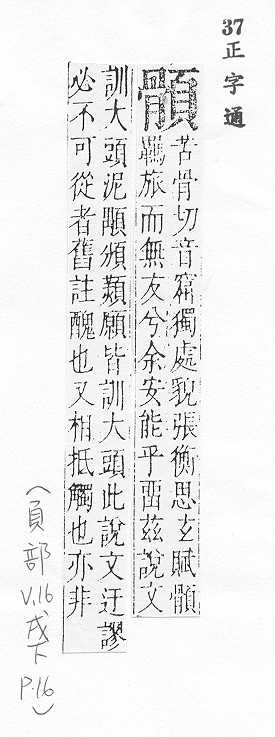 37正字通
顝
苦骨切音窟獨處貌張衡思玄賦顝
羈旅而無友兮余安能乎畱茲說文
訓大頭泥顒頒顡願皆訓大頭此說文迂謬
必不可從者舊註醜也又相抵觸也亦非
(頁部
V.16
戌下
P.16)